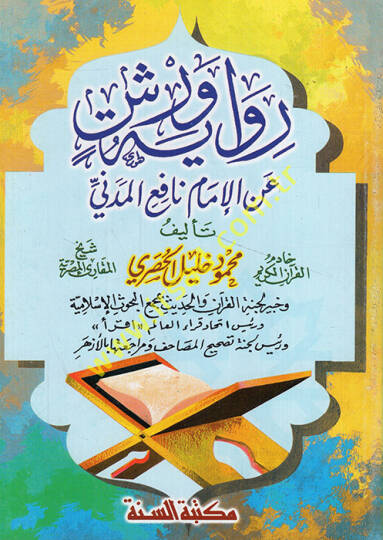 رواية ورش
عن الإمام نافع المدني
تأليف
خادم القرآن الكريم
محمود خليل الحصري
شيخ المقارئ المصرية
وخبير لجنة القرآن والحديث بمجمع البحوث الإسلامية
ورئيس اتحاد قراء العالم «اقرأ»
ورئيس لجنة تصحيح المصاحف ومراجعتها بالأزهر
مكتبة السنة